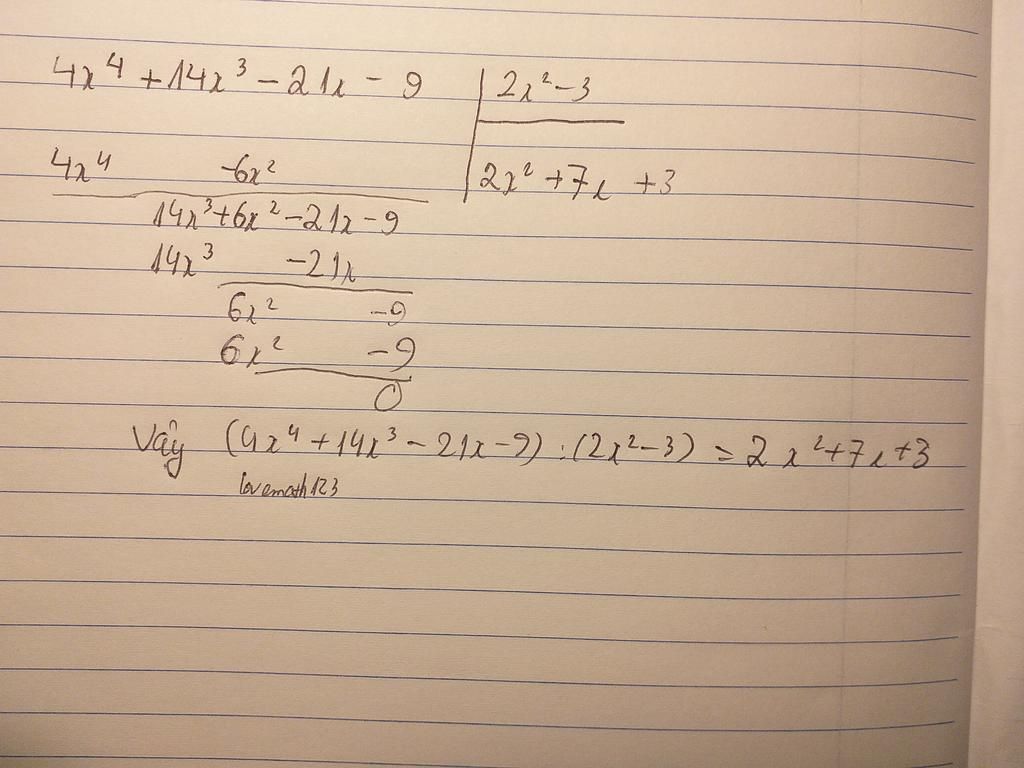 4x⁴ + 14x³ - 21x - 9 | 2x² - 3
4x⁴ -6x² | 2x² + 7x + 3
14x³ + 6x² - 21x - 9
14x³ - 21x
6x² - 9
6x² - 9
0
Vậy (4x⁴ + 14x³ - 21x - 9) : (2x² - 3) = 2x² + 7x + 3
lovemath123